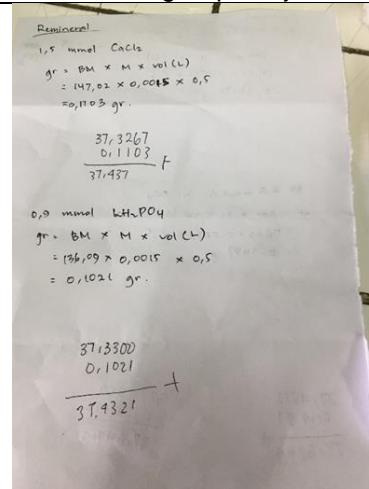 Remineral
1,5 mmol CaCl2
gr = BM x M x vol (L)
= 147,02 x 0,0015 x 0,5
= 0,1103 gr.
37,3267
0,1103
+
37,437
0,9 mmol KH2PO4
gr = BM x M x vol (L)
= 136,09 x 0,0015 x 0,5
= 0,1021 gr.
37,3300
0,1021
+
37,4321